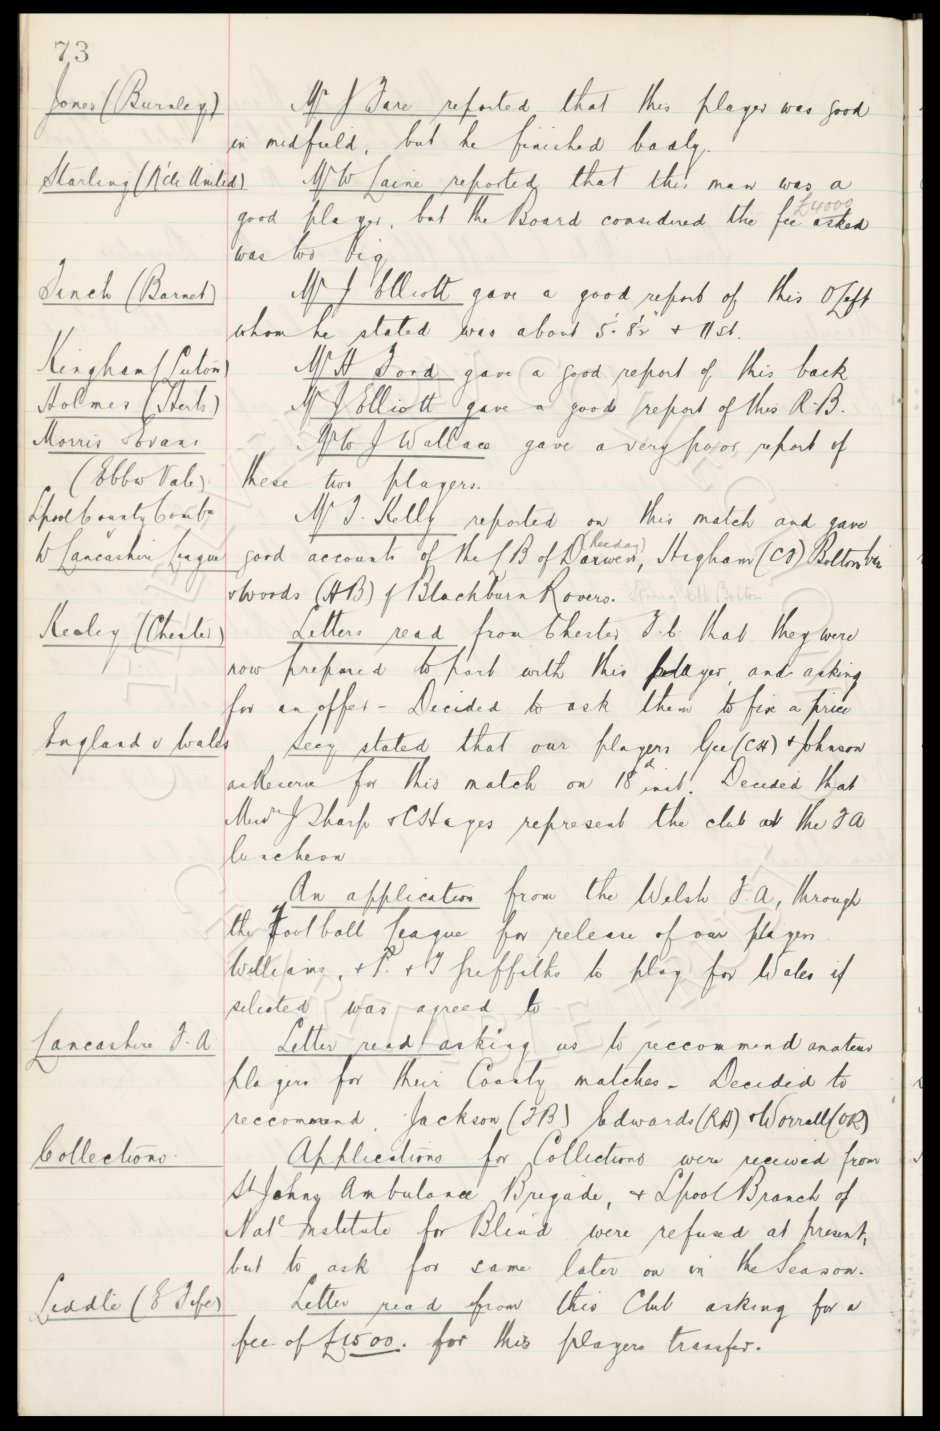 73
Jones (Burnley) Mr J Fare reported that this player was good
in midfield, but he finished badly.
Starling (N'cle United) Mr W Laine reported that this man was a
£4000
good player, but the Board considered the fee asked
was too big
Finch (Barnet) Mr J Elliott gave a good report of this O Left
whom he stated was about 5'. 8½" + 11 st.
Kingham (Luton) Mr H Ford gave a good report of this back
Holmes (Herts) Mr J Elliott gave a good report of this R-B.
Morris & Evans Mr W J Wallace gave a very poor report of
(Ebbw Vale) these two players.
Lpool County Combn Mr T. Kelly reported on this match and gave
v
W Lancashire League good accounts of the f B of Darwen, Higham (CF) Bolton
& Woods (HB) of Blackburn Rovers. Strong LH Bolton
Kealey (Chester) Letters read from Chester F.C. that they were
now prepared to part with this player, and asking
for an offer - Decided to ask them to fix a price
England v Wales Secy stated that our players Gee (CH) & Johnson
as Reserve for this match on 18th inst. Decided that
Messrs J Sharp & C S Hayes represent the club at the F A
luncheon
An application from the Welsh F.A, through
the Football League for release of our players
Williams, & P. & T Griffiths to play for Wales if
selected was agreed to
Lancashire F.A Letter read asking us to reccommend amateur
players for their County matches - Decided to
reccommend, Jackson (FB) Edwards (RH) & Worrall (OR)
Collections. Applications for Collections were received from
St Johns Ambulance Brigade, & Lpool Branch of
Natl Institute for Blind were refused at present,
but to ask for same later on in the Season.
Liddle (E Fife) Letter read from this Club asking for a
fee of £1500. for this players transfer.